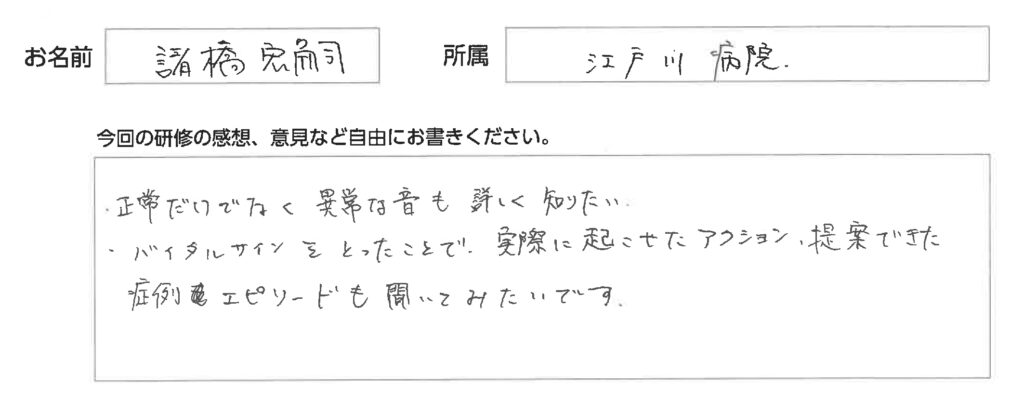 お名前 諸橋宏嗣 所属 江戸川病院.
今回の研修の感想、意見など自由にお書きください。
・正常だけでなく異常な音も詳しく知りたい.
・バイタルサインをとったことで、実際に起こせたアクション、提案できた
症例 エピソードも聞いてみたいです.